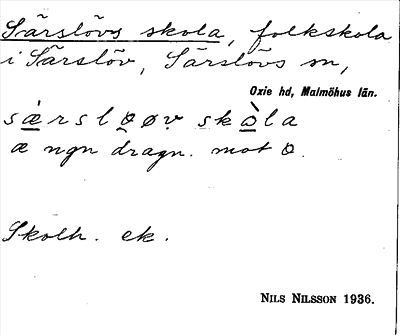 Särslövs skola, folkskola
i Särslöv, Särslövs sn,
Oxie hd, Malmöhus län.
særslo̬øv̬ skòla
æ ngn dragn. mot
Skolh. ek.
NILS NILSSON 1936.